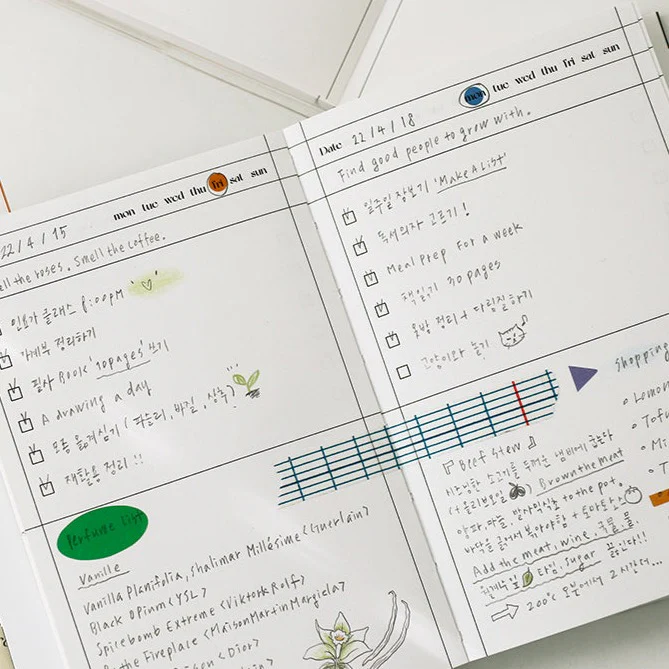 mon tue wed thu fri sat sun
22/4/15
ell the roses. Smell the coffee.
인요가 클래스 8:00PM
가계부 정리하기
필사 Book '10pages' 쓰기
A drawing a day
모종 옮겨심기 (파슬리, 바질, 상추)
재활용 정리!!
Perfume list
Vanille
Vanilla Planifolia, Shalimar Millésime <Guerlain>
Black Opium <YSL>
Spicebomb Extreme <Viktor&Rolf>
the Fireplace <Maison Martin Margiela>
<Dior>
mon tue wed thu fri sat sun
Date 22/4/18
Find good people to grow with.
일주일 장보기 'Make A List'
독서의자 고르기!
Meal prep for a week
책읽기 30 pages
옷방 정리 + 다림질하기
고양이와 놀기
shopping
Lemon
Tofu
Mi
T
Beef Stew
시즈닝한 소고기를 두꺼운 냄비에 굽는다
(+올리브오일) Brown the meat
양파, 마늘, to the pot.
바닥을 긁어서 볶아야함 + 토마토소스
Add the meat, wine, 국물, 물,
월계수잎 타임, sugar 끓인다!!
200℃ 오븐에서 2시간 더...